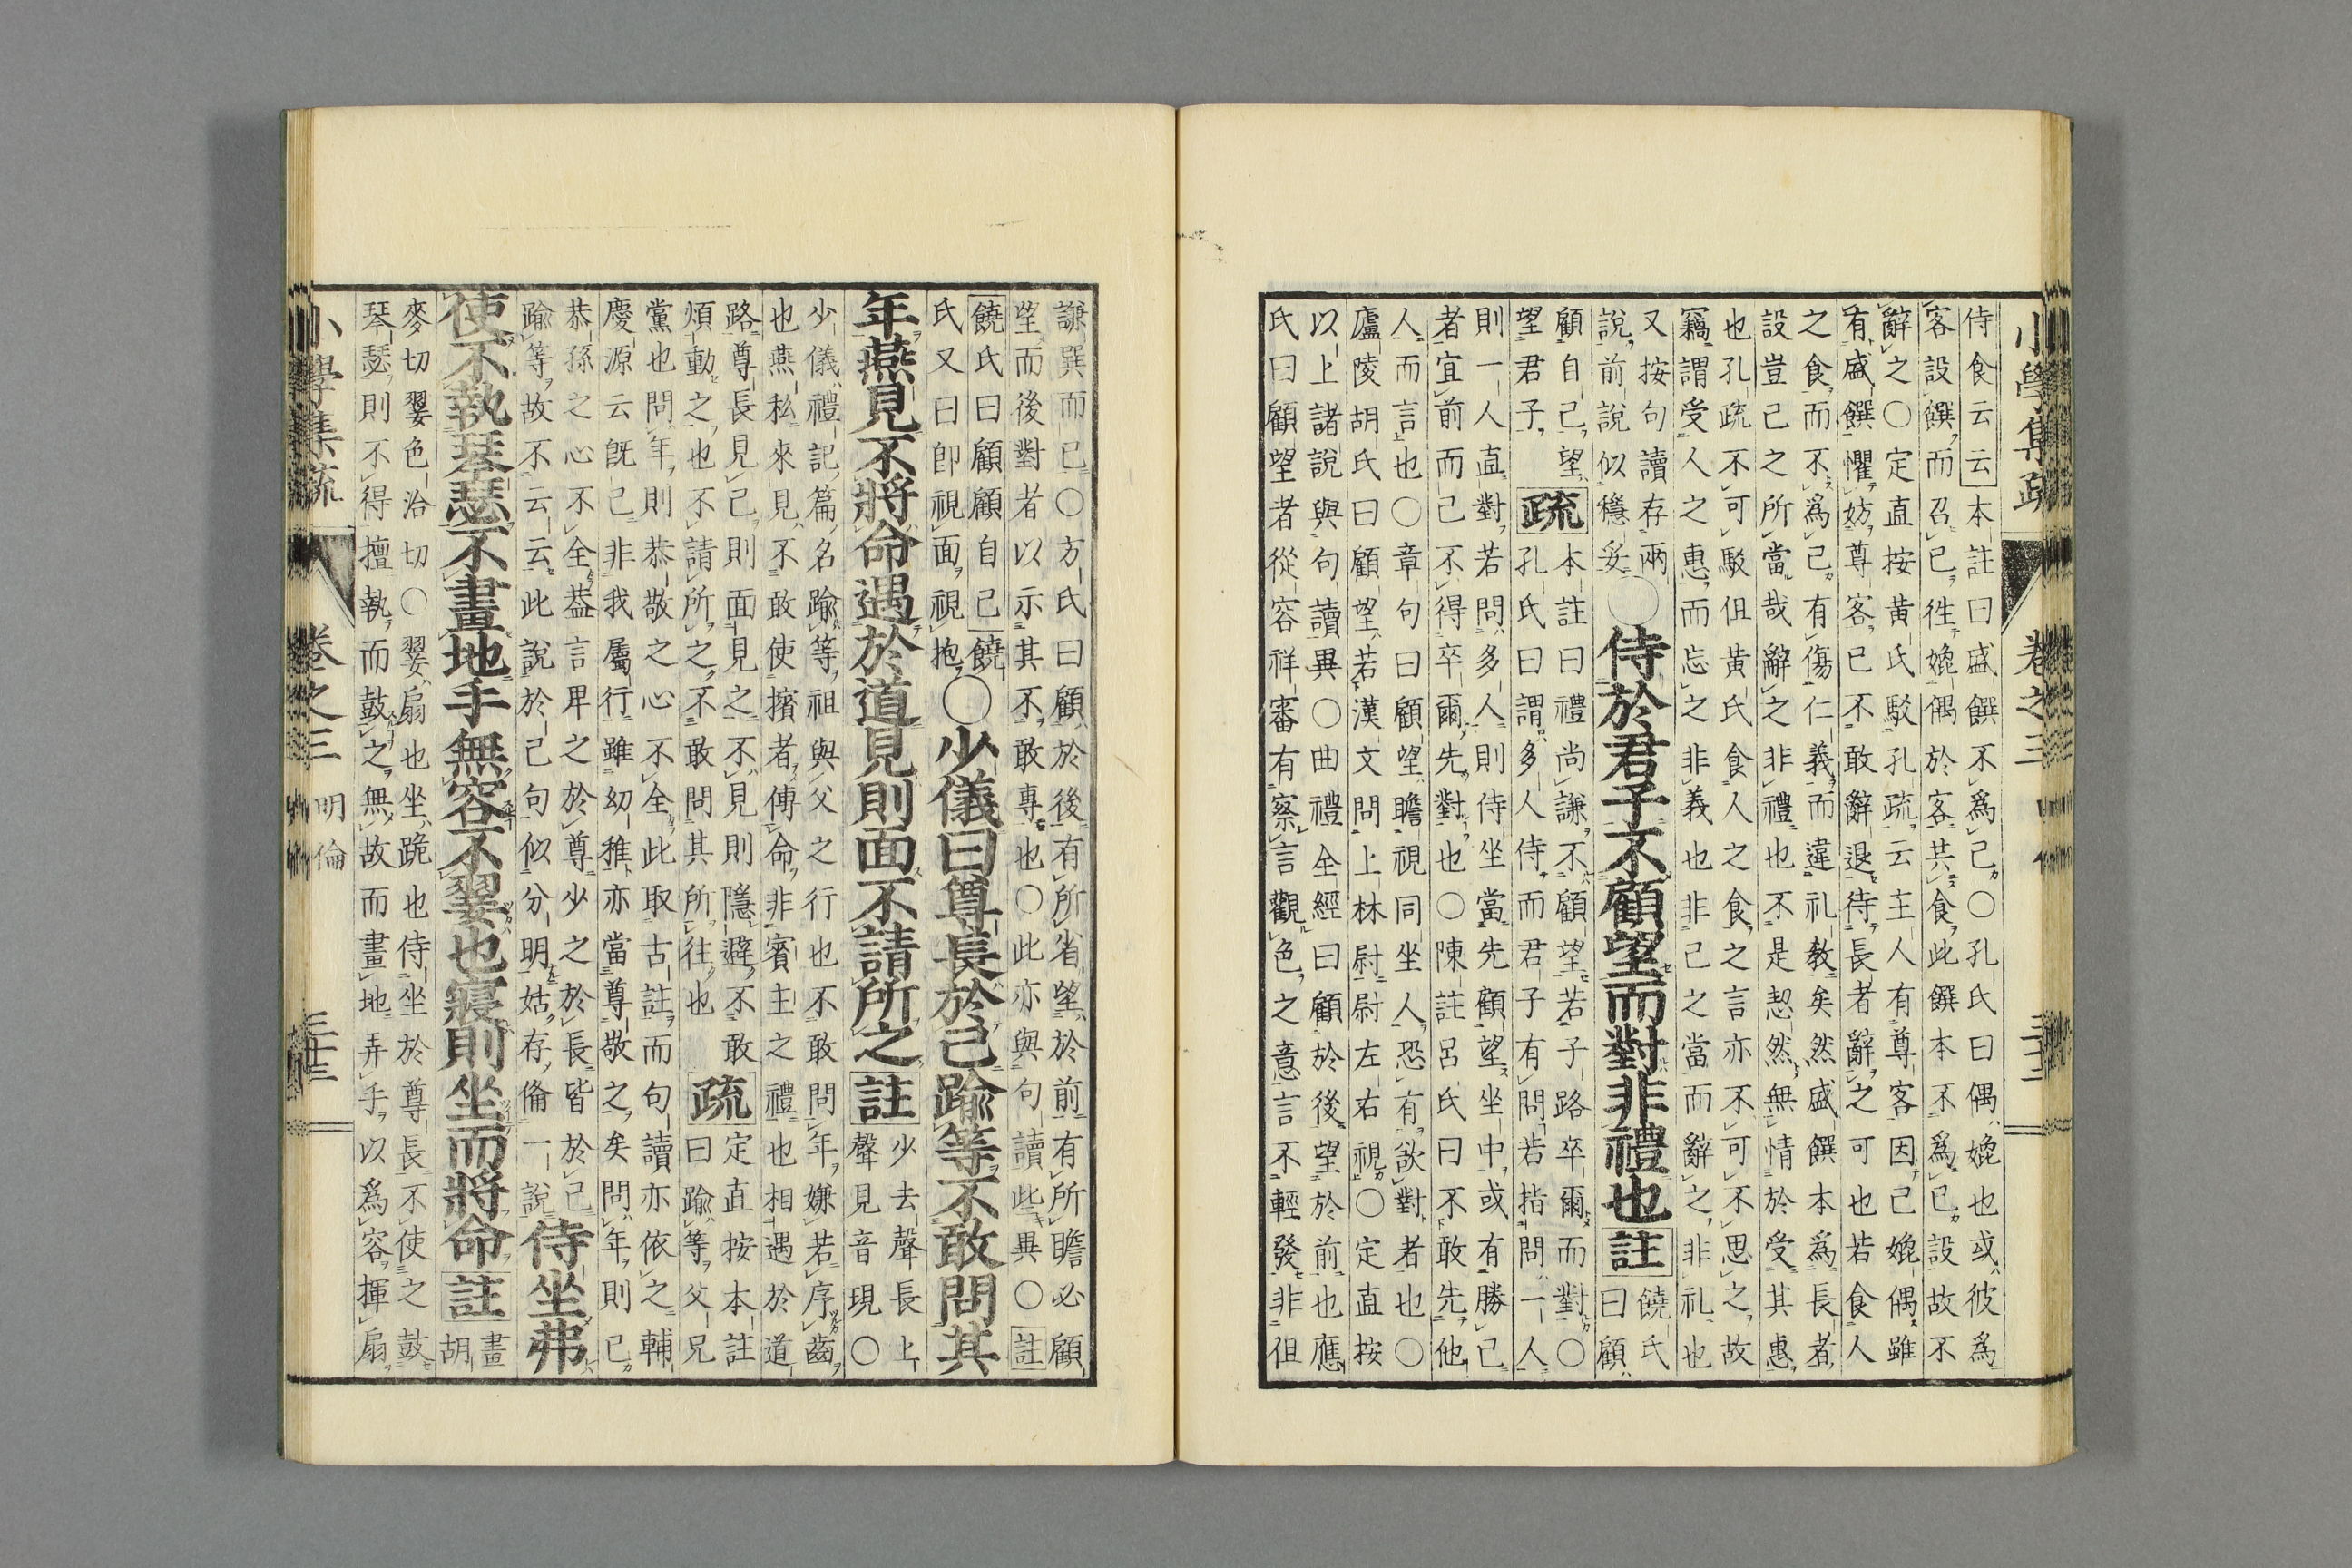 小學集疏 卷之三 三十二
侍食云云本註曰盛饌不爲己○孔氏曰偶媲也或彼爲
客設饌而召已徃媲偶於客共食此饌本不爲已設故不
辭之○定直按黄氏駁孔疏云主人有尊客因己媲偶雖
有盛饌懼妨尊客已不敢辭退待長者辭之可也若食人
之食而不爲己有傷仁義而違礼教矣然盛饌本爲長者
設豈已之所當哉辭之非禮也不是恝然無情於受其惠
也孔疏不可駁但黄氏食人之食之言亦不可不思之故
竊謂受人之惠而忘之非義也非己之當而辭之非礼也
又按句讀存兩
說前說似穩妥○侍於君子不顧望而對非禮也註饒氏
曰顧
顧自己望
望君子疏本註曰禮尚謙不顧望若子路卒爾而對○
孔氏曰謂多人侍而君子有問若指問一人
則一人直對若問多人則侍坐當先顧望坐中或有勝己
者宜前而己不得卒爾先對也○陳註呂氏曰不敢先他
人而言也○章句曰顧望瞻視同坐人恐有欲對者也○
廬陵胡氏曰顧望若漢文問上林尉尉左右視○定直按
以上諸說與句讀異○曲禮全經曰顧於後望於前也應
氏曰顧望者從容祥審有察言觀色之意言不輕發非但
謙巽而已○方氏曰顧於後有所省望於前有所瞻必顧
望而後對者以示其不敢專也○此亦與句讀此異○註
饒氏曰顧顧自己饒
氏又曰卽視面視抱○少儀曰尊長於己踰等不敢問其
年燕見不將命遇於道見則面不請所之註少去聲長上
聲見音現○
少儀禮記篇名踰等祖與父之行也不敢問年嫌若序齒
也燕私來見不敢使擯者傳命非賓主之禮也相遇於道
路尊長見己則面見之不見則隱避不敢
煩動之也不請所之不敢問其所往也疏定直按本註
曰踰等父兄
黨也問年則恭敬之心不全此取古註而句讀亦依之輔
慶源云旣己非我屬行雖幼稚亦當尊敬之矣問年則已
恭孫之心不全葢言卑之於尊少之於長皆於己
踰等故不云云此說於己句似分明姑存偹一說侍坐弗
使不執琴瑟不畫地手無容不翣也寢則坐而將命註畫
胡
麥切翣色洽切○翣扇也坐跪也侍坐於尊長不使之鼓
琴瑟則不得擅執而鼓之無故而畫地弄手以爲容揮扇
小學集疏 卷之三 明倫 三十三